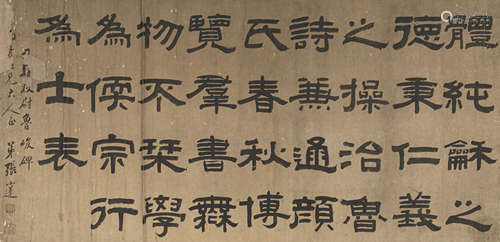 體純龢之
德秉仁義
之操治魯
詩兼通顏
氏春秋博
覽羣書橆
物不栞學
為偄宗行
為士表
校尉魯峻碑
兄大人正 弟張達